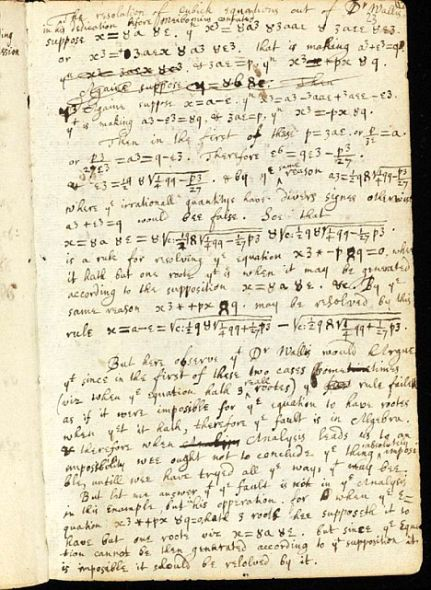 The resolution of Cubick equations out of Dr Wallis
in his dedication before Meibomius confuted
23
suppose x=8a8e. yn x3=8a383aae83aee8e3.
or x3=*3aex8a38e3. that is making a3+e3=q
yn & 3ae=p. yn x3=*px8q.
Againe suppose
Againe suppose x=a-e. yn x3=a3-3aae+3aee-e3.
yt is making a3-e3=8q. & 3ae=p. yn x3=*-px8q.
Then in the first of these p=3ae. or p/3e=a.
or p3/27e3=a3=q-e3. Therefore e6=qe3-p3/27.
& e3=½q8√¼qq-p3/27. & by ye same reason a3=½q8√¼qq-p3/27
where ye irrationall quantitys have divers signes otherwise
a3+e3=q would bee false. Soe that
x=8a8e=8√c:½q8√¼qq-1/27p3 8√c:½q8√¼qq-1/27p3.
is a rule for resolving ye equation x3*-p8q=0. when
it hath but one roote yt is when it may be generated
according to the supposition x=8a8e. &c. By ye
same reason x3*+px8q. may be resolved by this
rule x=a-e=√c:½q8√¼qq+1/27p3 - √c:½q8√¼qq+1/27p3.
But here observe yt Dr Wallis would Argue
yt since in the first of these two cases sometimes
(viz when ye equation hath 3 reall rootes) ye rule failes
as if it were impossible for ye equation to have roots
when yet it hath, therefore ye fault is in Algebra.
& therefore when Analysis leads us to an
impossibility wee ought not to conclude ye thing absolutely impossi
ble, untill wee have tryed all ye ways yt may bee.
But let me answer yt ye fault is not in ye Analysis
in this Example, but his operation. for when ye e=
quation x3*+px8q=0 hath 3 roots hee supposeth it to
have but one roote viz x=8a8e. but since ye Equa
tion cannot be then generated according to yt supposition it
is imposible it should be resolved by it.